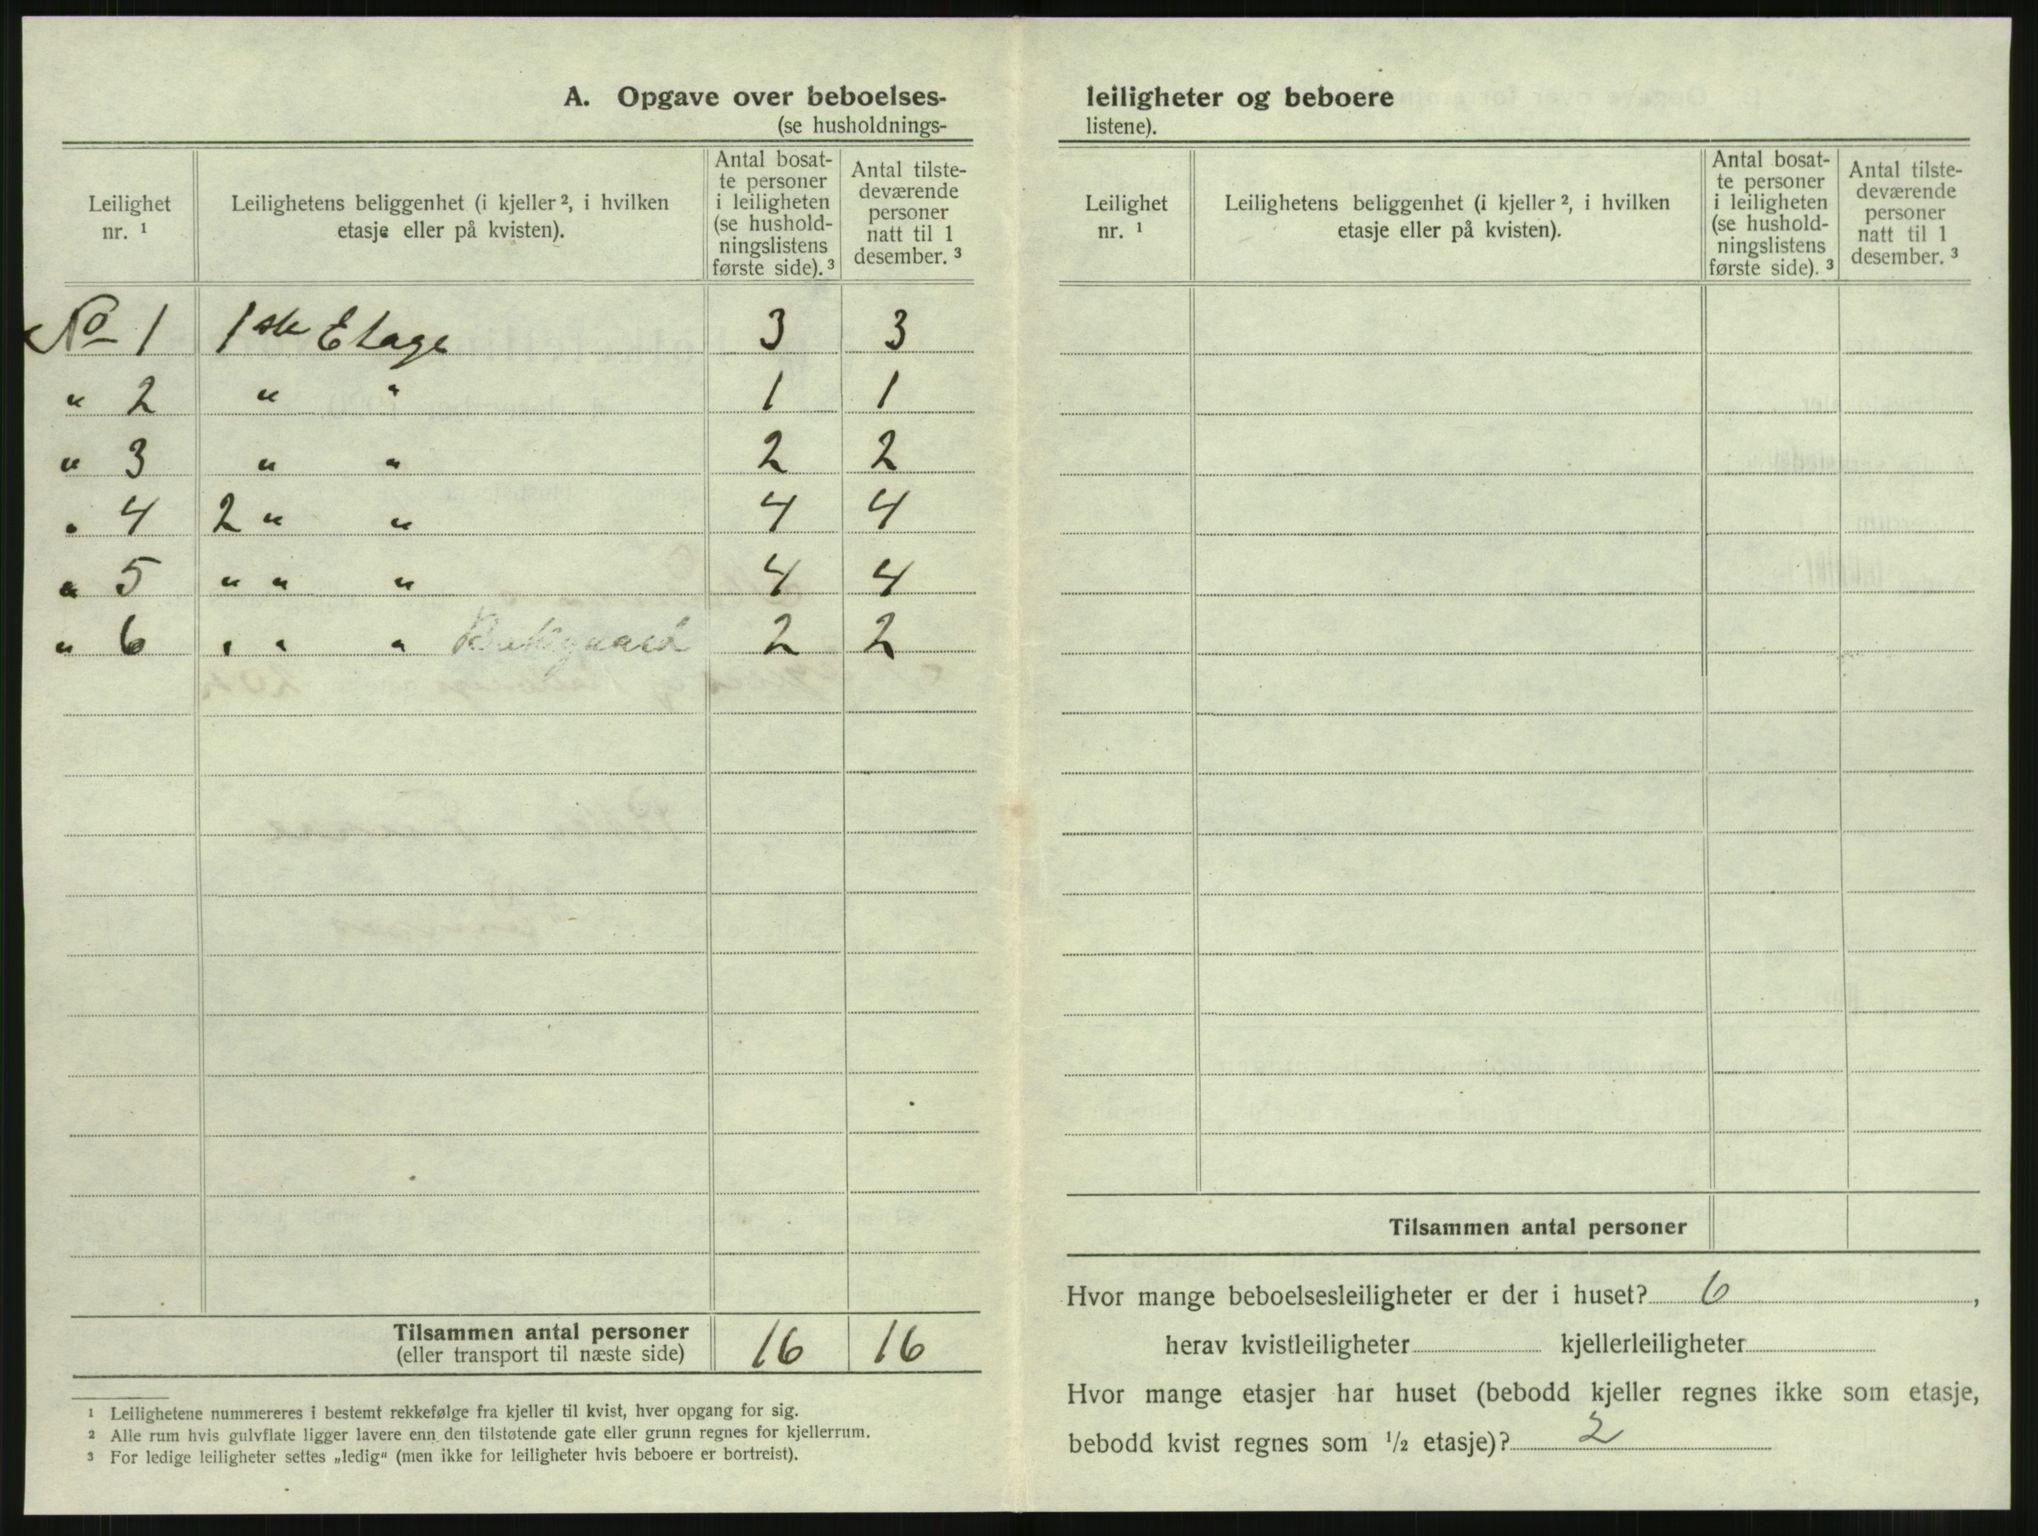 A. Opgave over beboelses-
(se husholdnings-
Leilighet nr. ¹
Leilighetens beliggenhet (i kjeller ², i hvilken etasje eller på kvisten).
Antal bosat-
te personer
i leiligheten
(se hushold-
ningslistens
første side). ³
Antal tilste-
deværende
personer
natt til 1
desember. ³
No 1 1ste Etage 3 3
" 2 " " 1 1
" 3 " " 2 2
" 4 2 " " 4 4
" 5 " " " 4 4
" 6 " " " Bakgaard 2 2
Tilsammen antal personer 16 16
(eller transport til næste side)
¹ Leilighetene nummereres i bestemt rekkefølge fra kjeller til kvist, hver opgang for sig.
² Alle rum hvis gulvflate ligger lavere enn den tilstøtende gate eller grunn regnes for kjellerrum.
³ For ledige leiligheter settes „ledig“ (men ikke for leiligheter hvis beboere er bortreist).
leiligheter og beboere
listene).
Leilighet nr. ¹
Leilighetens beliggenhet (i kjeller ², i hvilken etasje eller på kvisten).
Antal bosat-
te personer
i leiligheten
(se hushold-
ningslistens
første side). ³
Antal tilste-
deværende
personer
natt til 1
desember. ³
Tilsammen antal personer
Hvor mange beboelsesleiligheter er der i huset? 6,
herav kvistleiligheter kjellerleiligheter
Hvor mange etasjer har huset (bebodd kjeller regnes ikke som etasje,
bebodd kvist regnes som ½ etasje)? 2